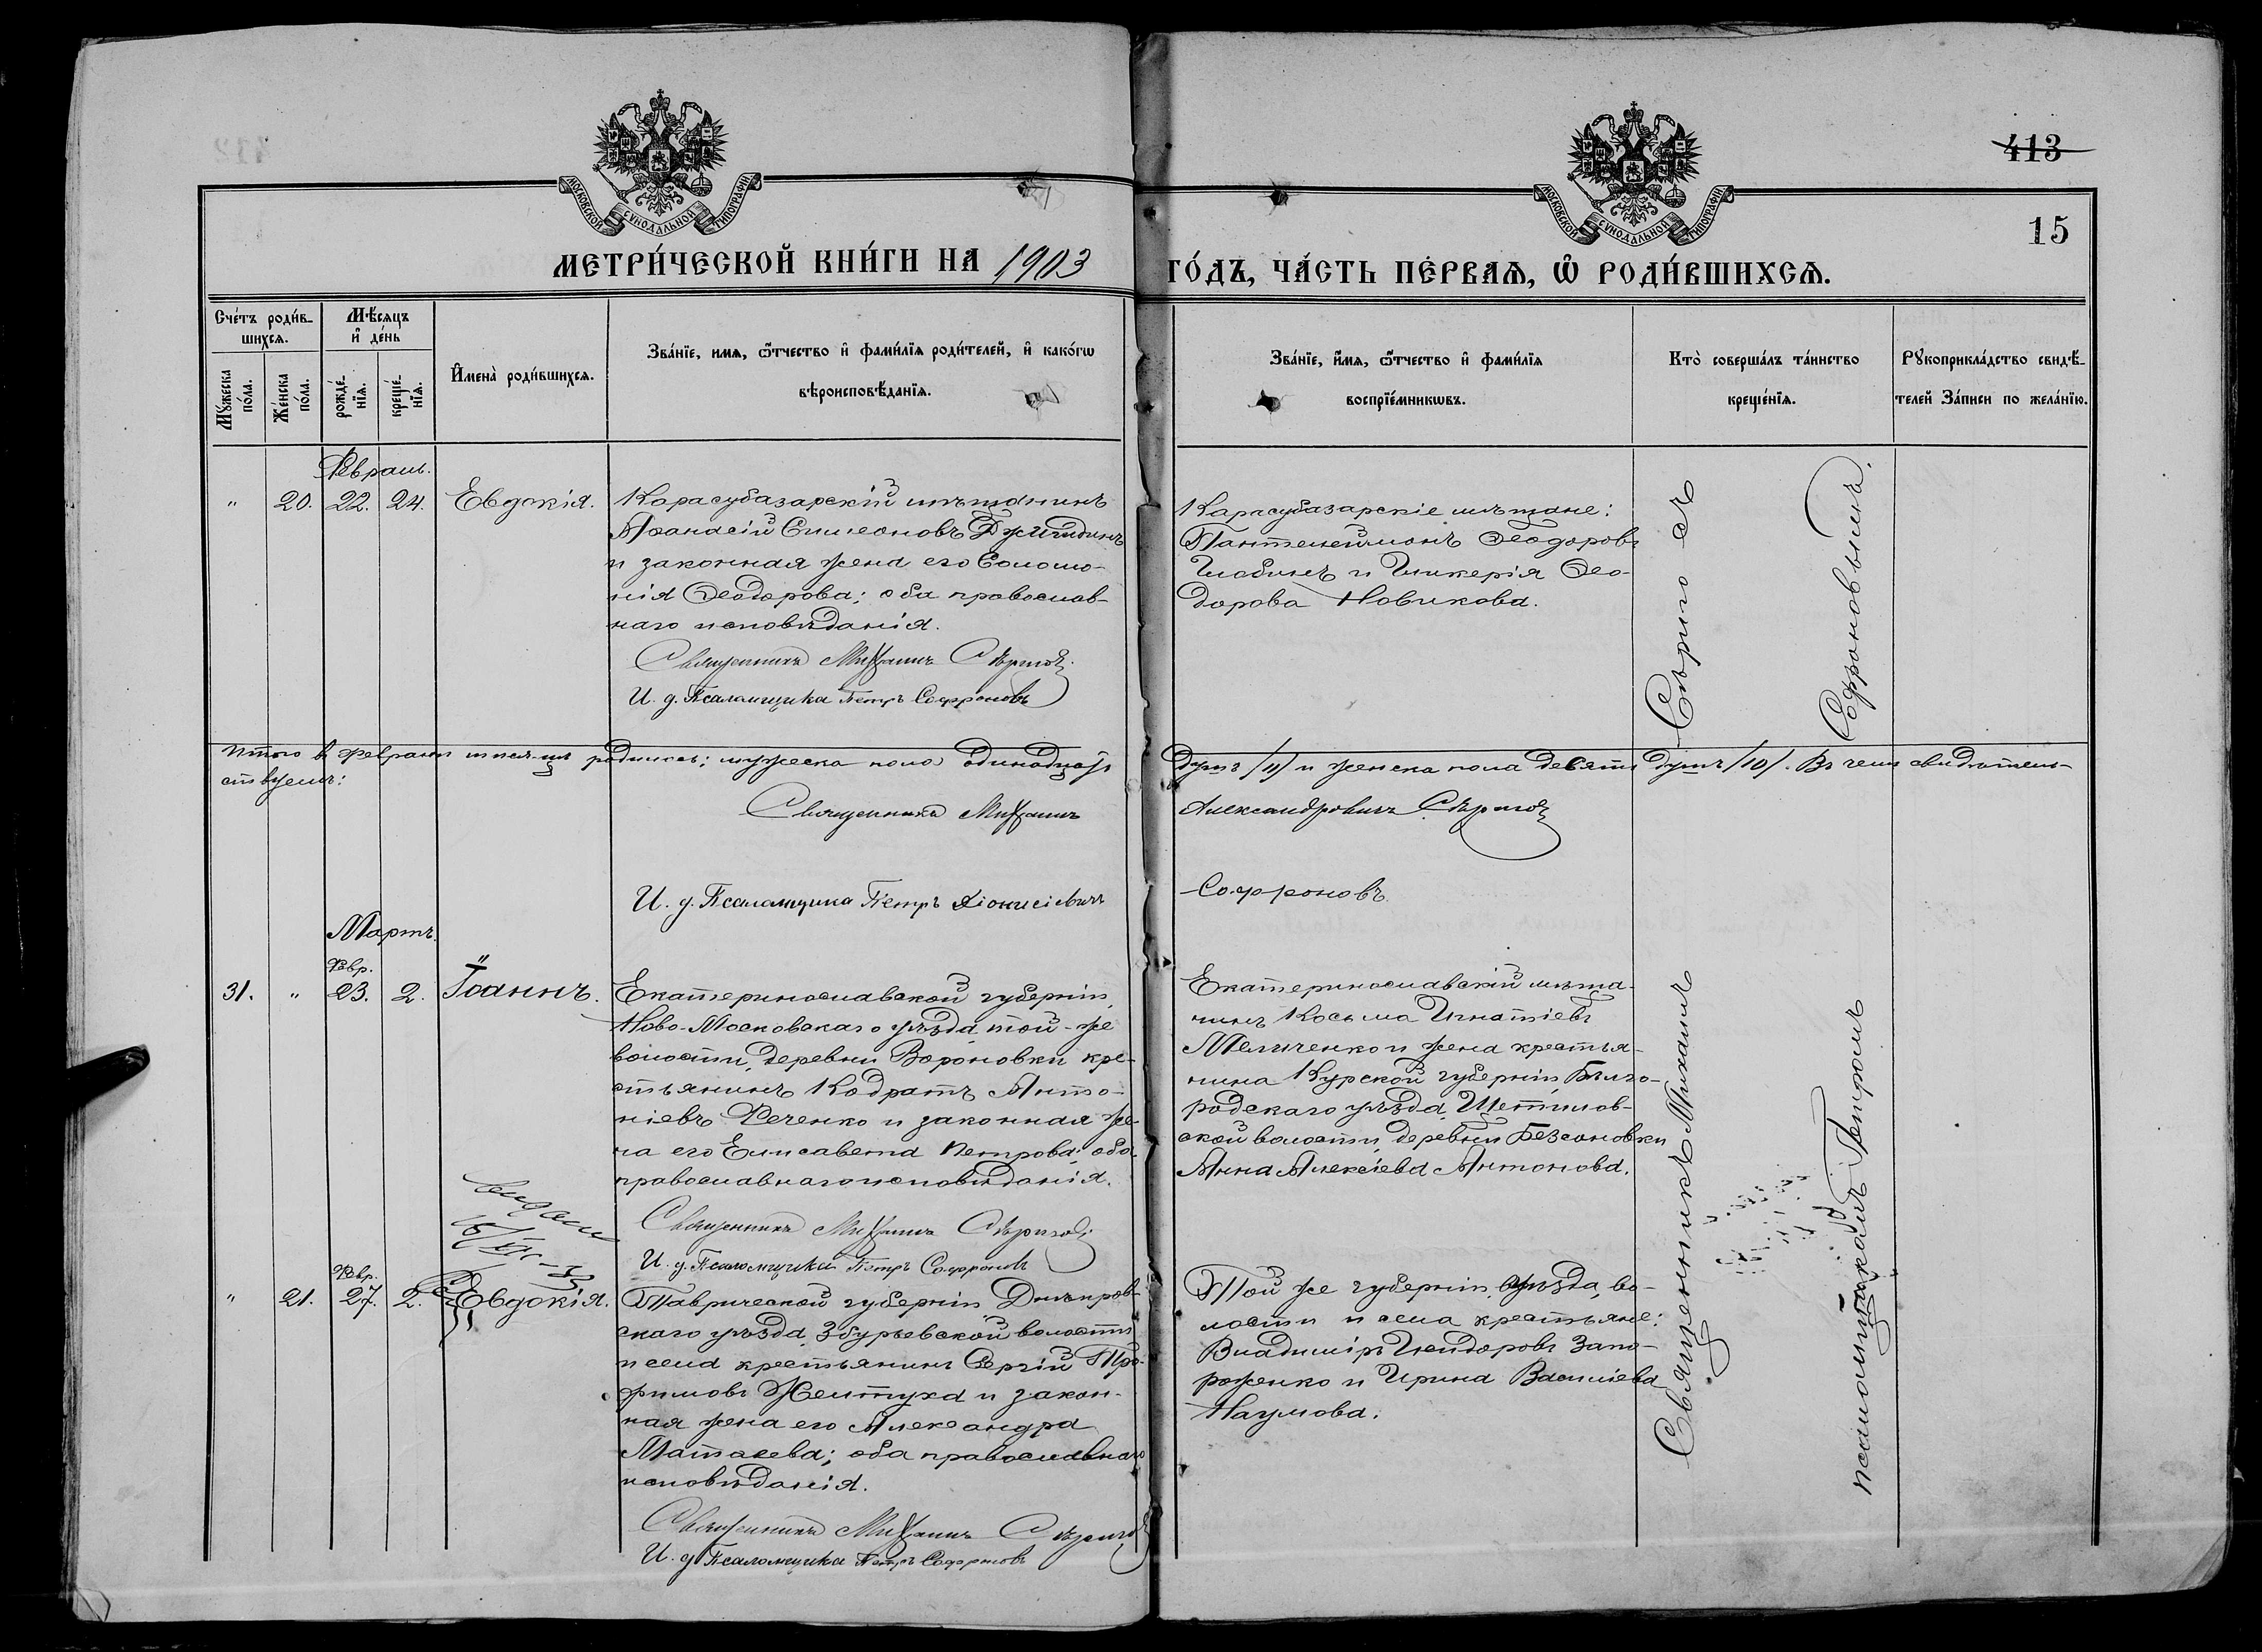 413
15
МОСКОВСКОЙ СѴНОДАЛЬНОЙ ТИПОГРАФІИ
МОСКОВСКОЙ СѴНОДАЛЬНОЙ ТИПОГРАФІИ
МЕТРИ́ЧЕСКОЙ КНИ́ГИ НА 1903
ГО́ДЪ, ЧА́СТЬ ПЕ́РВАѦ, Ѡ РОДИ́ВШИХСѦ.
Сче́тъ роди́в-
шихсѧ.
Мꙋжеска
по́ла.
Же́нска
по́ла.
Мѣ́сѧцъ
и҆ де́нь
рожде́-
нїѧ.
креще́-
нїѧ.
И҆мена̀ роди́вшихсѧ.
Зва́нїе, имѧ, ѻ҆́тчество и҆ фами́лїѧ роди́телей, и҆ како́гѡ
вѣроисповѣ́данїѧ.
Зва́нїе, и҆́мѧ, ѻ҆́тчество и҆ фами́лїѧ
воспрїе́мникѡвъ.
Кто̀ соверша́лъ та́инство
креще́нїѧ.
Рꙋкоприкла́дство свидѣ́-
телей За́писи по жела́нїю.
Февраль.
" 20. 22. 24. Евдокія.
Карасубазарскій мѣщанинъ
Аѳанасій Симеоновъ
и законная жена его Соломо-
нія Ѳеодорова; оба православ-
наго исповѣданія.
Священникъ Михаилъ Сѣриковъ
И. д. Псаломщика Петръ Софроновъ
Карасубазарскіе мѣщане:
Пантелеймонъ Ѳеодоровъ
и Гликерія Ѳео-
дорова Новикова.
Итого в феврале мѣсяцѣ родилось: мужеска пола одинадцать
душъ /11/ и женска пола десять душъ /10/. Въ чемъ свидѣтель-
ствуемъ:
Священникъ Михаилъ
Александровичъ Сѣриковъ
И. д. Псаломщика Петръ Діонисіевичъ
Софроновъ
Мартъ.
Февр.
31. " 23. 2. Іоаннъ.
Екатеринославской губерніи,
Ново-Московскаго уѣзда, той-же
волости, деревни Вороновки кре-
стьянинъ Кодратъ Анто-
ніевъ Реченко и законная же-
на его Елисавета Петрова; оба
православнаго исповѣданія.
Священникъ Михаилъ Сѣриковъ
И. д. Псаломщика Петръ Софроновъ
Екатеринославскій мѣща-
нинъ Косьма Игнатіевъ
и жена крестья-
нина Курской губерніи, Бѣлго-
родскаго уѣзда,
ской волости, деревни Безсоновки
Анна Алексіева Антонова.
Февр.
" 21. 27. 2. Евдокія.
Таврической губерніи Днѣпров-
скаго уѣзда, Збурьевской волости
и села крестьянинъ Сергій Тро-
фимовъ Желтуха и закон-
ная жена его Александра
оба православнаго
исповѣданія.
Священникъ Михаилъ Сѣриковъ
И. д. Псаломщика Петръ Софроновъ
Той же губерніи, уѣзда, во-
лости и села крестьяне:
Владиміръ Исидоровъ Запо-
роженко и Ирина Василіева
Наумова.
Священникъ Михаилъ
псаломщикомъ Петромъ
Софроновымъ.